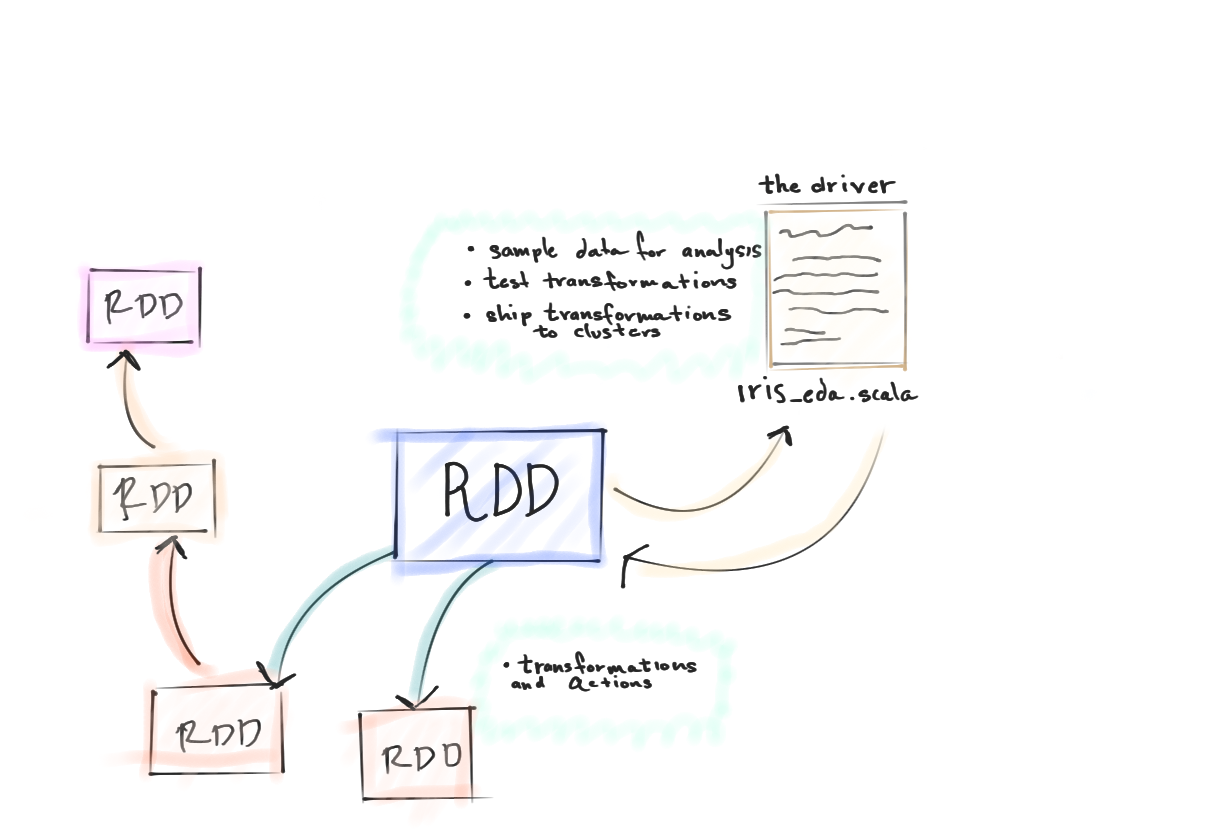 the driver
• sample data for analysis
• test transformations
• ship transformations
to clusters
iris_eda.scala
RDD
RDD
RDD
• transformations
and actions
RDD
RDD